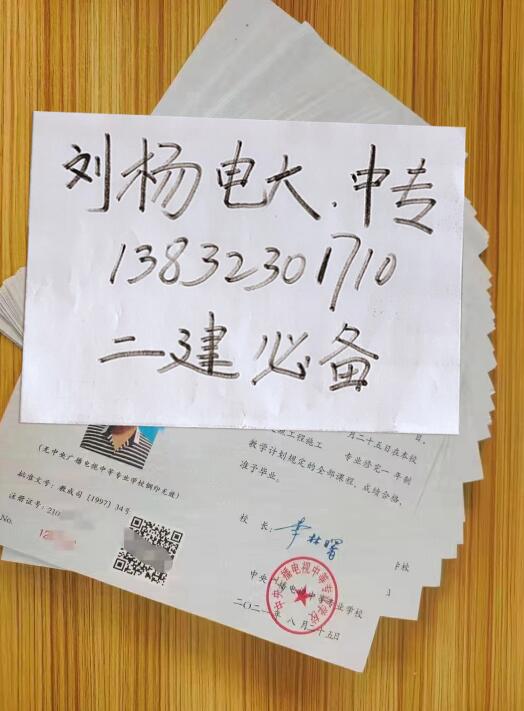 刘杨电大.中专
13832301710
二建必备
工程施工
月二十五日在本校
专业修完一年制
教学计划规定的全部课程,成绩合格,
准予毕业。
(无中央广播电视中等专业学校钢印无效)
批准文号:教成司[1997]34号
注册证号:210
No.
校长:
李林曙
中央广播电视中等专业学校
二〇二一年八月二十五日